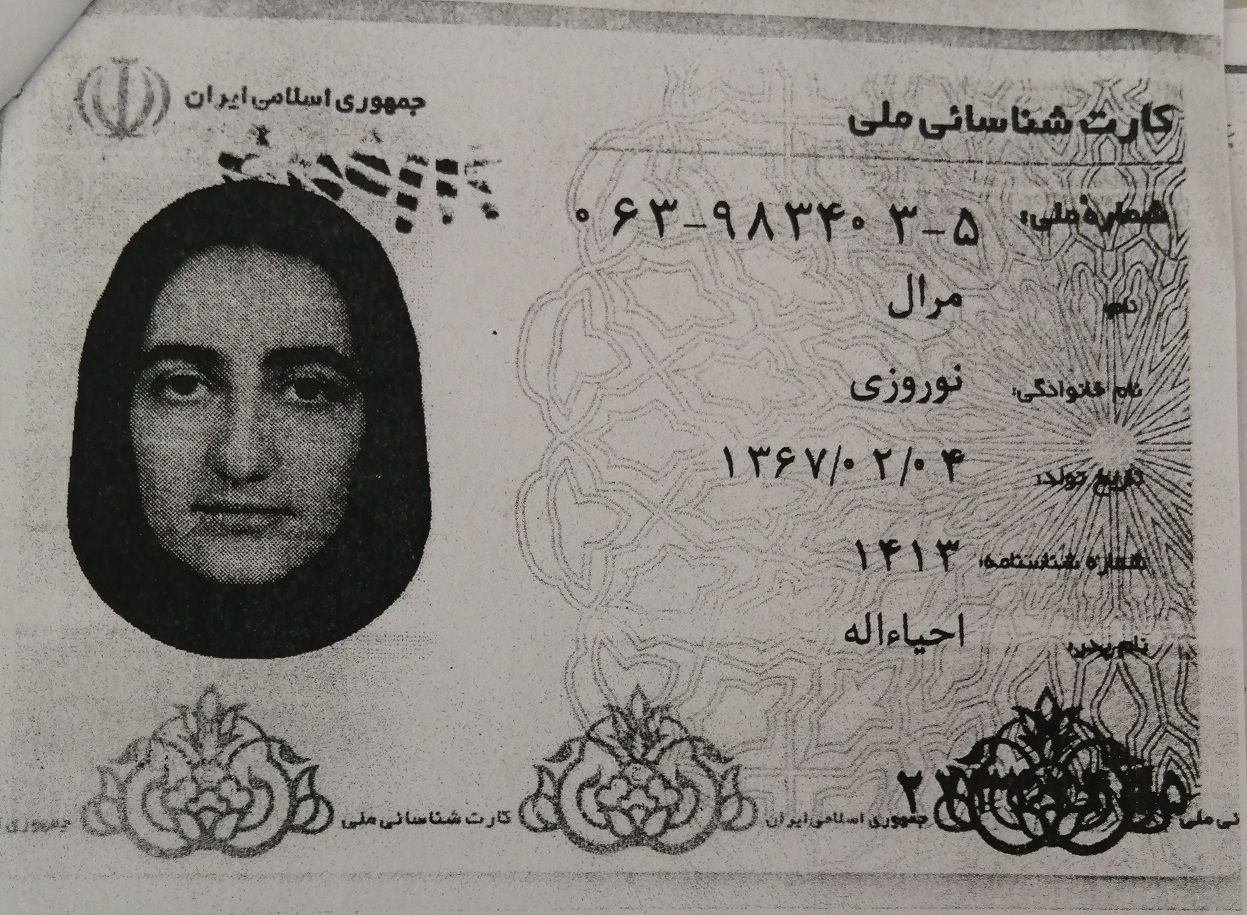 جمهوری اسلامی ایران
کارت شناسائی ملی
شماره ملی: ۰۶۳-۹۸۳۴۰۳-۵
نام: مرال
نام خانوادگی: نوروزی
تاریخ تولد: ۱۳۶۷/۰۲/۰۴
شماره شناسنامه: ۱۴۱۳
نام پدر: احیاءاله
نی ملی جمهوری اسلامی ایران کارت شناسائی ملی جمهوری